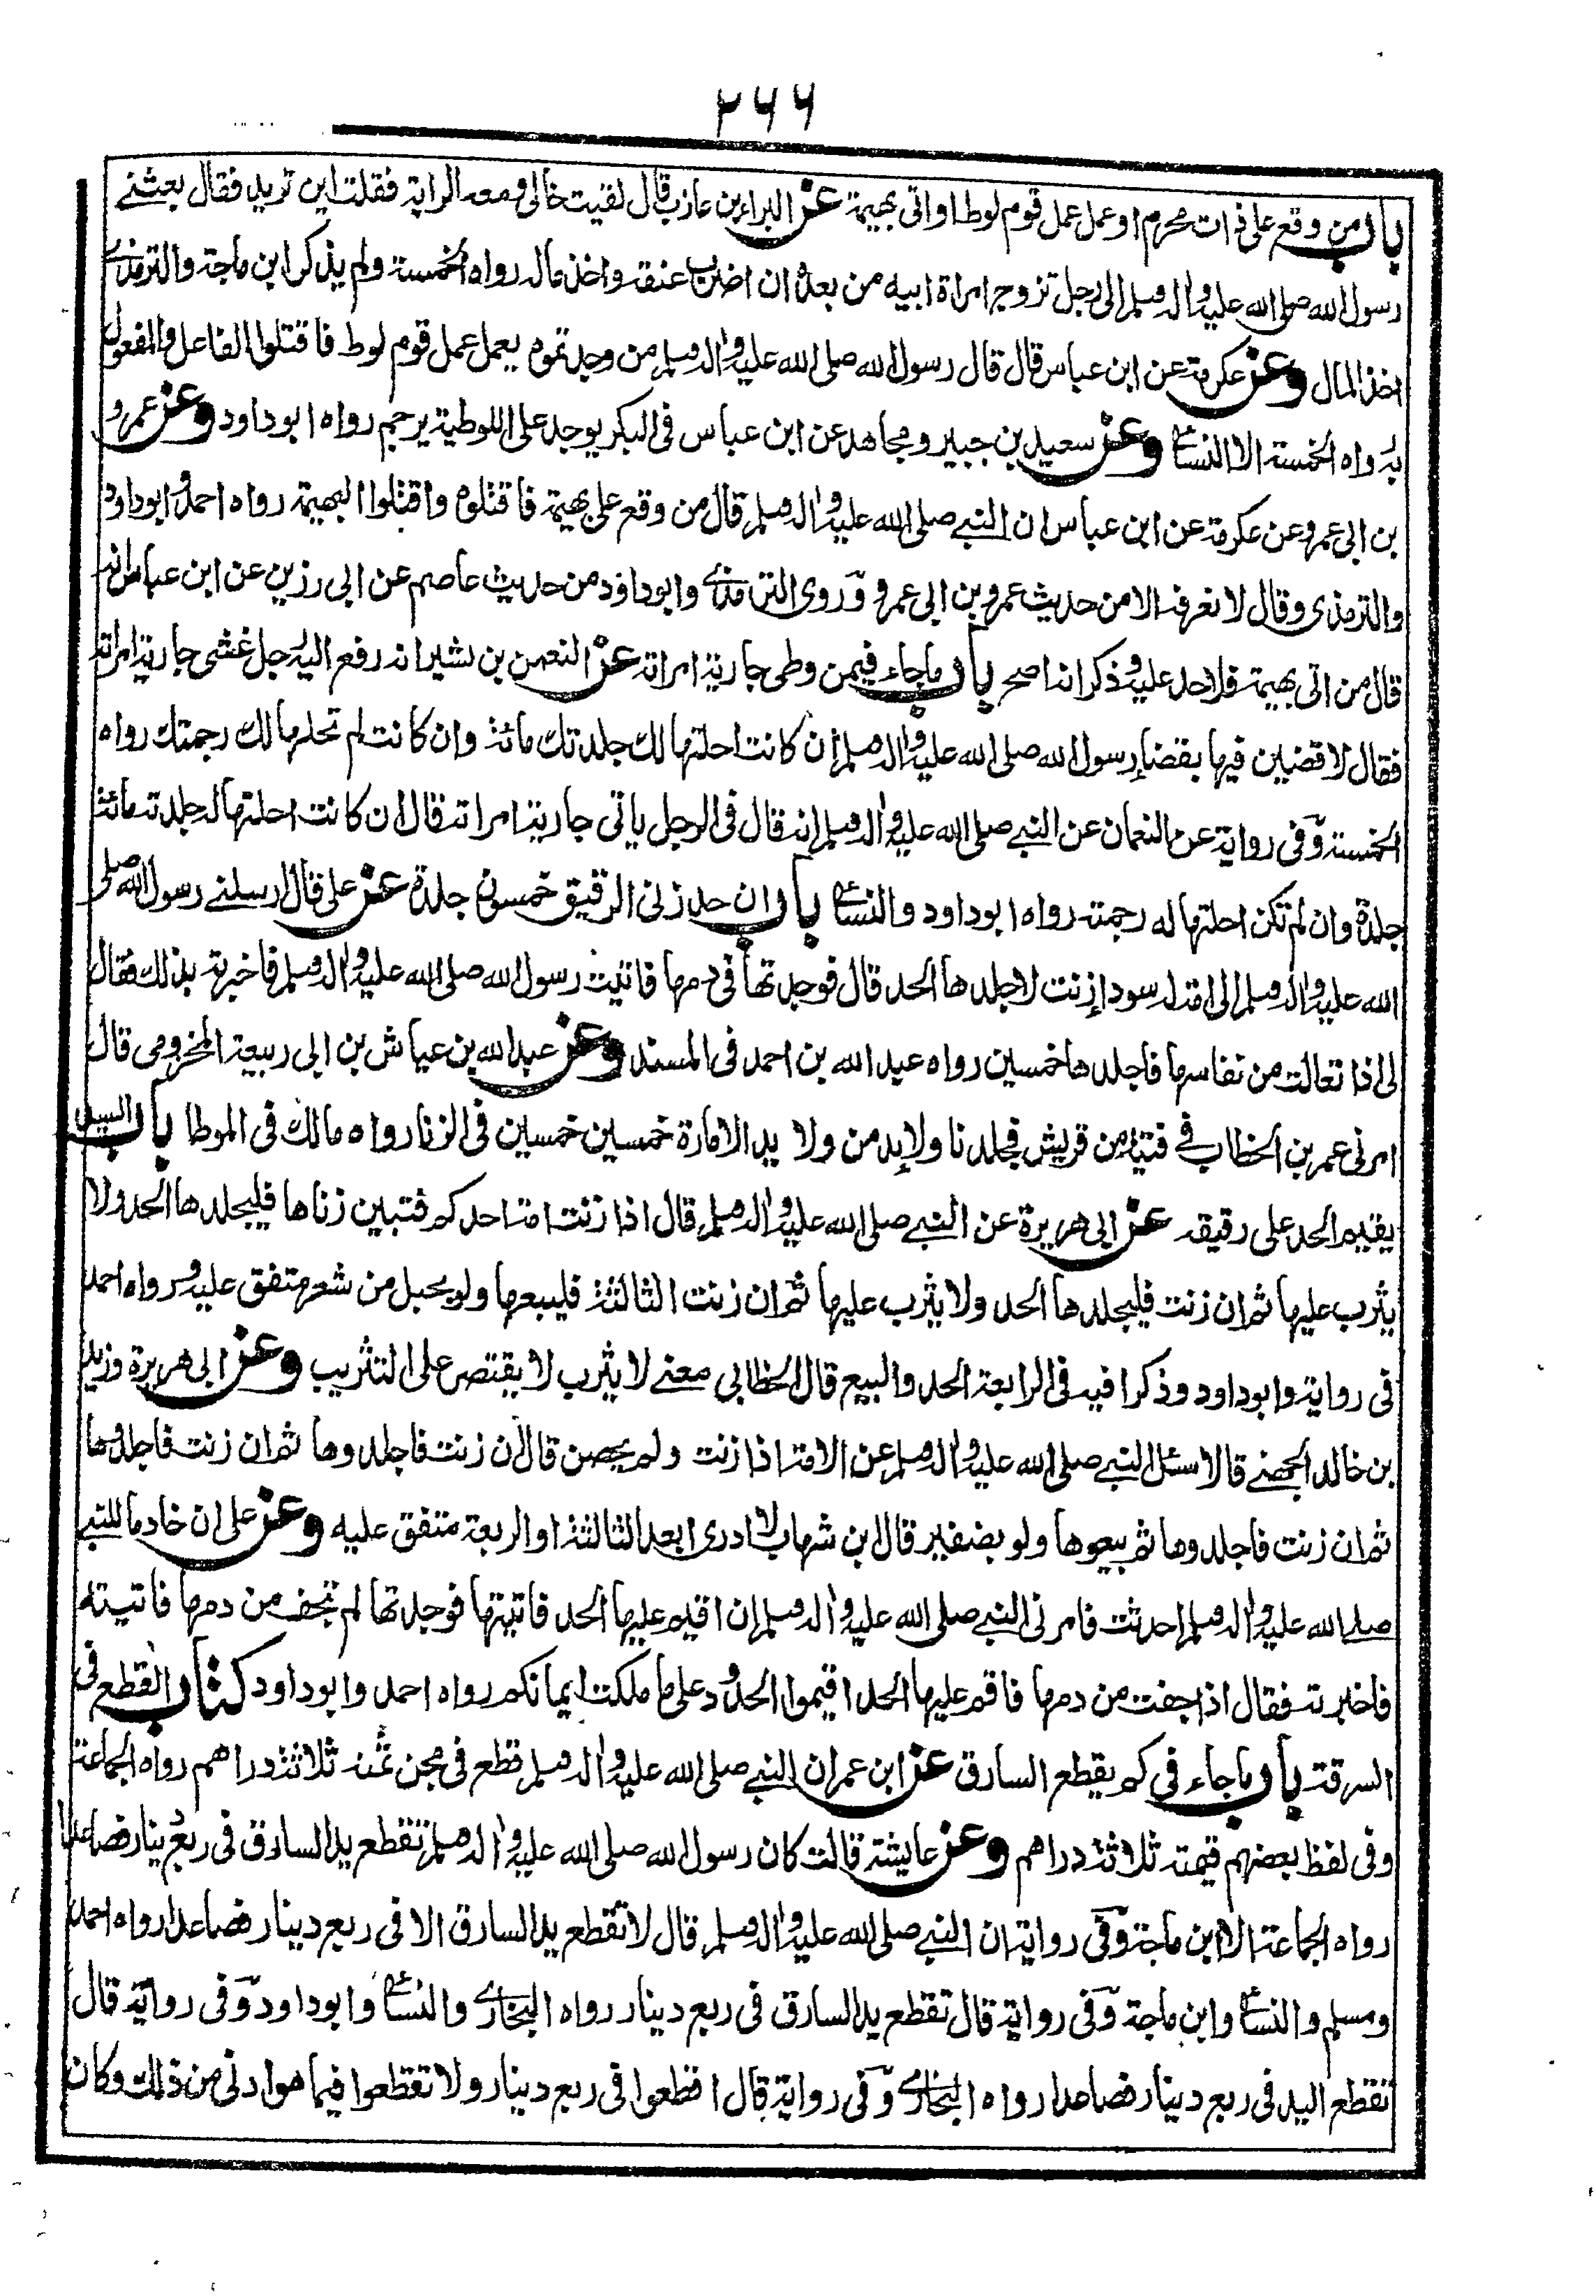 ٢٦٦
باب من وقع على ذات محرم او عمل عمل قوم لوط او اتى بهيمة عن البراء بن عازب قال لقيت خالى ومعه الراية فقلت اين تريد فقال بعثنے
رسول الله صلى الله عليه واٰله وسلم الى رجل تزوج امراة ابيه من بعده ان اضرب عنقه واخذ ماله رواه الخمسة ولم يذكر ابن ماجة والترمذے
اخذ المال وعن عكرمة عن ابن عباس قال قال رسول الله صلى الله عليه واٰله وسلم من وجدتموه يعمل عمل قوم لوط فاقتلوا الفاعل والمفعول
به رواه الخمسة الا النسائے وعن سعيد بن جبير ومجاهد عن ابن عباس فى البكر يوجد على اللوطية يرجم رواه ابوداود وعن عمرو
بن ابى عمرو عن عكرمة عن ابن عباس ان النبے صلى الله عليه واٰله وسلم قال من وقع على بهيمة فاقتلوه واقتلوا البهيمة رواه احمد وابوداود
والترمذى وقال لا نعرفه الا من حديث عمرو بن ابى عمرو وروى الترمذے وابوداود من حديث عاصم عن ابى رزين عن ابن عباس انه
قال من اتى بهيمة فلا حد عليه وذكر انه اصح باب ماجاء فيمن وطى جارية امراته عن النعمن بن بشير انه رفع اليه رجل غشى جارية امراته
فقال لاقضين فيها بقضاء رسول الله صلى الله عليه واٰله وسلم ان كانت احلتها لك جلدتك مائة وان كانت لم تحلها لك رجمتك رواه
الخمسة وفى رواية عن النعمان عن النبے صلى الله عليه واٰله وسلم انه قال فى الرجل ياتى جارية امراته قال ان كانت احلتها له جلدته مائة
جلدة وان لم تكن احلتها له رجمته رواه ابوداود والنسائے باب ان حد زنى الرقيق خمسون جلدة عن على قال ارسلنے رسول الله صلى
الله عليه واٰله وسلم الى امة له سوداء زنت لاجلدها الحد قال فوجدتها فى دمها فاتيت رسول الله صلى الله عليه واٰله وسلم فاخبرته بذلك فقال
لى اذا تعالت من نفاسها فاجلدها خمسين رواه عبد الله بن احمد فى المسند وعن عبد الله بن عياش بن ابى ربيعة المخزومى قال
امرنى عمر بن الخطاب فے فتية من قريش فجلدنا ولايد من ولا يد الامارة خمسين خمسين فى الزنا رواه مالك فى الموطا باب السيد
يقيم الحد على رقيقه عن ابى هريرة عن النبے صلى الله عليه واٰله وسلم قال اذا زنت امة احدكم فتبين زناها فليجلدها الحد ولا
يثرب عليها ثم ان زنت فليجلدها الحد ولا يثرب عليها ثم ان زنت الثالثة فليبعها ولو بحبل من شعر متفق عليه ورواه احمد
فى رواية وابوداود وذكرا فيه فى الرابعة الحد والبيع قال الخطابى معنے لا يثرب لا يقتصر على التثريب وعن ابى هريرة وزيد
بن خالد الجهنے قالا سئل النبے صلى الله عليه واٰله وسلم عن الامة اذا زنت ولم يحصن قال ان زنت فاجلدوها ثم ان زنت فاجلدوها
ثم ان زنت فاجلدوها ثم بيعوها ولو بضفير قال ابن شهاب لا ادرى ابعد الثالثة او الربعة متفق عليه وعن على ان خادما للنبے
صلے الله عليه واٰله وسلم احدثت فامرنى النبے صلى الله عليه واٰله وسلم ان اقيم عليها الحد فاتيتها فوجدتها لم تجف من دمها فاتيته
فاخبرته فقال اذا جفت من دمها فاقم عليها الحد اقيموا الحدود على ما ملكت ايمانكم رواه احمد وابوداود كتاب القطع فى
السرقة باب ماجاء فى كم يقطع السارق عن ابن عمر ان النبے صلى الله عليه واٰله وسلم قطع فى مجن ثمنه ثلاثة دراهم رواه الجماعة
وفى لفظ بعضهم قيمته ثلاثة دراهم وعن عايشة قالت كان رسول الله صلى الله عليه واٰله وسلم تقطع يد السارق فى ربع دينار فصاعدا
رواه الجماعة الا ابن ماجة وفى رواية ان النبے صلى الله عليه واٰله وسلم قال لا تقطع يد السارق الا فى ربع دينار فصاعدا رواه احمد
ومسلم والنسائے وابن ماجة وفى رواية قال تقطع يد السارق فى ربع دينار رواه البخارے والنسائے وابوداود وفى رواية قال
تقطع اليد فى ربع دينار فصاعدا رواه البخارے وفى رواية قال اقطعوا فى ربع دينار ولا تقطعوا فيما هو ادنى من ذلك وكان